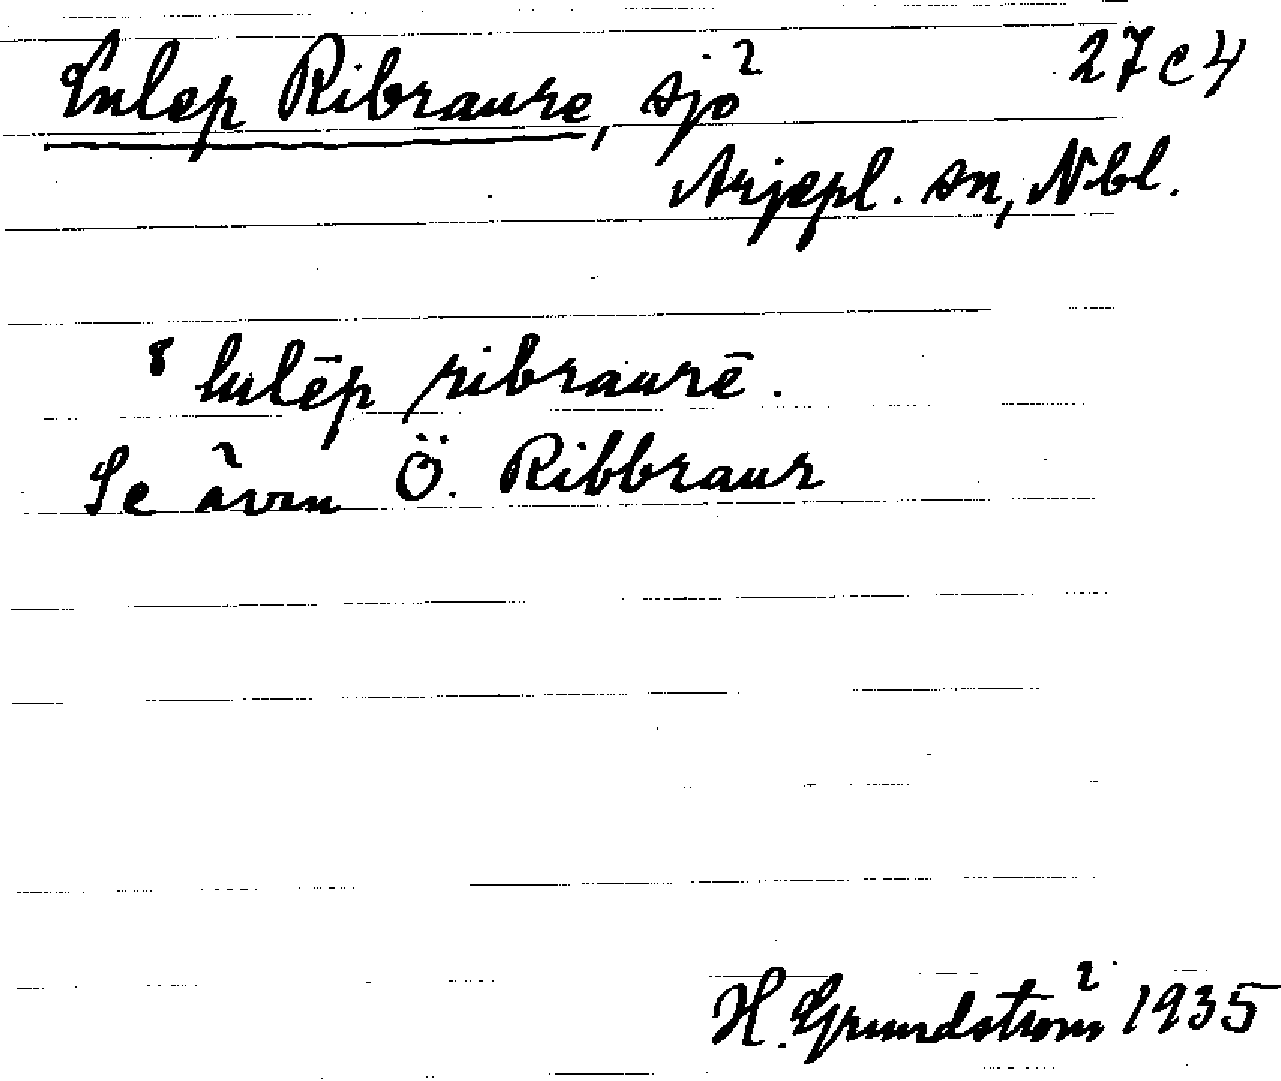 Lulep Ribraure, sjö 27c4
Arjepl. sn, Nbl.
lulēp ribraurē.
Se även Ö. Ribbraur
H. Grundström 1935